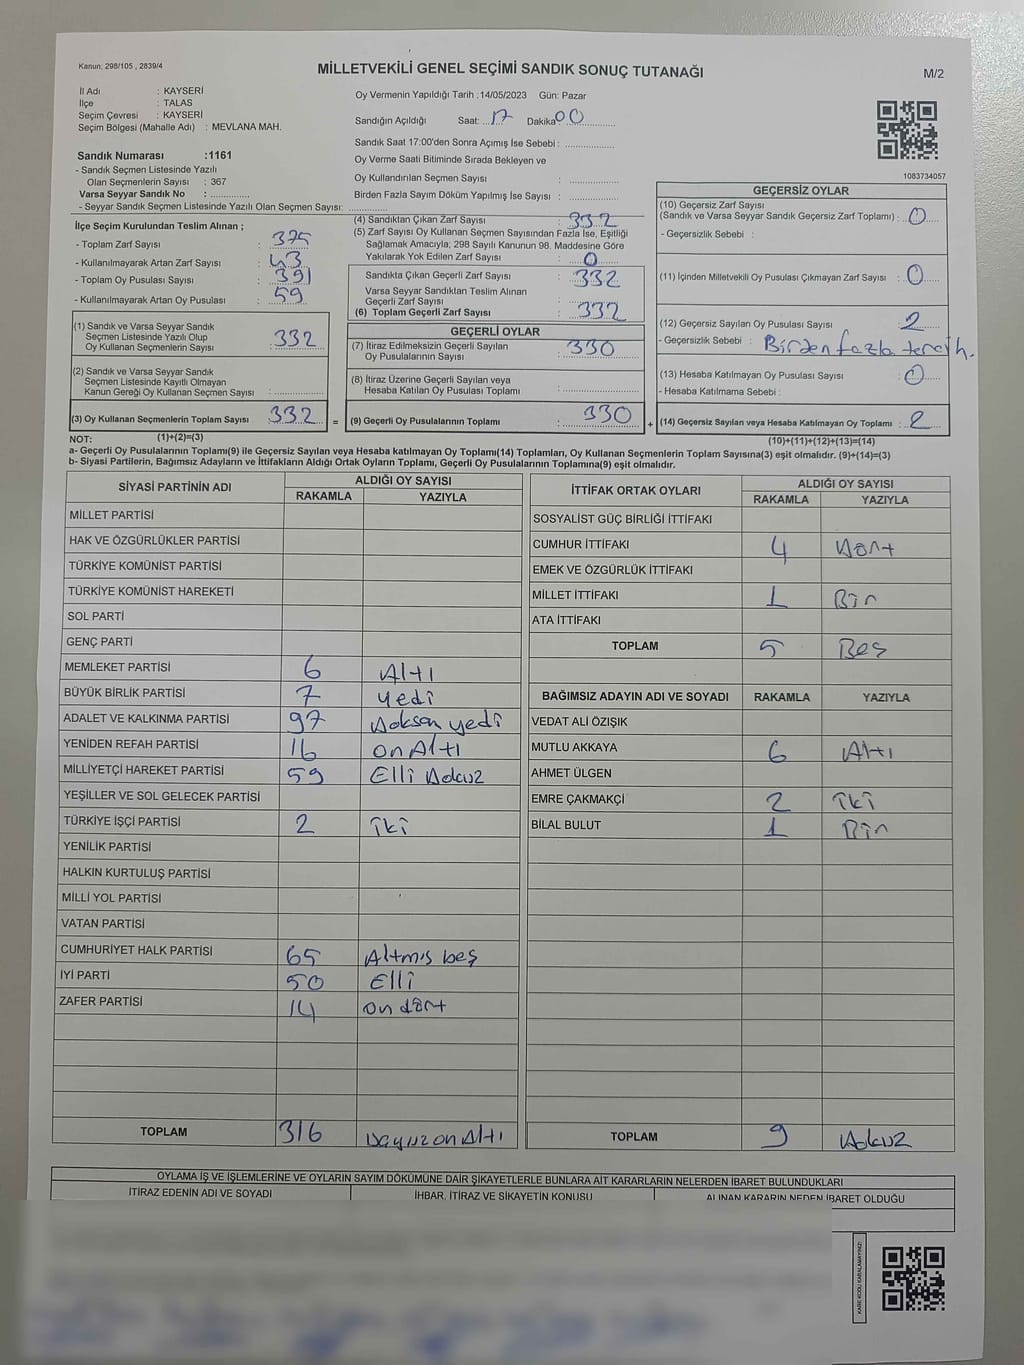 Kanun: 298/105 , 2839/4
MİLLETVEKİLİ GENEL SEÇİMİ SANDIK SONUÇ TUTANAĞI
M/2
İl Adı : KAYSERİ
İlçe : TALAS
Seçim Çevresi : KAYSERİ
Seçim Bölgesi (Mahalle Adı) : MEVLANA MAH.
Oy Vermenin Yapıldığı Tarih :14/05/2023 Gün: Pazar
Sandığın Açıldığı Saat: 17 Dakika 00
Sandık Saat 17:00'den Sonra Açımış İse Sebebi :
Oy Verme Saati Bitiminde Sırada Bekleyen ve
Oy Kullandırılan Seçmen Sayısı :
Birden Fazla Sayım Döküm Yapılmış İse Sayısı :
Sandık Numarası :1161
- Sandık Seçmen Listesinde Yazılı
Olan Seçmenlerin Sayısı : 367
Varsa Seyyar Sandık No :
- Seyyar Sandık Seçmen Listesinde Yazılı Olan Seçmen Sayısı:
1083734057
İlçe Seçim Kurulundan Teslim Alınan ;
- Toplam Zarf Sayısı : 375
- Kullanılmayarak Artan Zarf Sayısı : 43
- Toplam Oy Pusulası Sayısı : 391
- Kullanılmayarak Artan Oy Pusulası : 59
(1) Sandık ve Varsa Seyyar Sandık
Seçmen Listesinde Yazılı Olup
Oy Kullanan Seçmenlerin Sayısı : 332
(2) Sandık ve Varsa Seyyar Sandık
Seçmen Listesinde Kayıtlı Olmayan
Kanun Gereği Oy Kullanan Seçmen Sayısı :
(3) Oy Kullanan Seçmenlerin Toplam Sayısı : 332 =
(4) Sandıktan Çıkan Zarf Sayısı : 332
(5) Zarf Sayısı Oy Kullanan Seçmen Sayısından Fazla İse, Eşitliği
Sağlamak Amacıyla, 298 Sayılı Kanunun 98. Maddesine Göre
Yakılarak Yok Edilen Zarf Sayısı : 0
Sandıkta Çıkan Geçerli Zarf Sayısı : 332
Varsa Seyyar Sandıktan Teslim Alınan
Geçerli Zarf Sayısı :
(6) Toplam Geçerli Zarf Sayısı : 332
GEÇERLİ OYLAR
(7) İtiraz Edilmeksizin Geçerli Sayılan
Oy Pusulalarının Sayısı : 330
(8) İtiraz Üzerine Geçerli Sayılan veya
Hesaba Katılan Oy Pusulası Toplamı :
(9) Geçerli Oy Pusulalarının Toplamı : 330 +
GEÇERSİZ OYLAR
(10) Geçersiz Zarf Sayısı
(Sandık ve Varsa Seyyar Sandık Geçersiz Zarf Toplamı) : 0
- Geçersizlik Sebebi :
(11) İçinden Milletvekili Oy Pusulası Çıkmayan Zarf Sayısı : 0
(12) Geçersiz Sayılan Oy Pusulası Sayısı : 2
- Geçersizlik Sebebi : Birden fazla tercih.
(13) Hesaba Katılmayan Oy Pusulası Sayısı : 0
- Hesaba Katılmama Sebebi :
(14) Geçersiz Sayılan veya Hesaba Katılmayan Oy Toplamı : 2
NOT: (1)+(2)=(3)
(10)+(11)+(12)+(13)=(14)
a- Geçerli Oy Pusulalarının Toplamı(9) ile Geçersiz Sayılan veya Hesaba katılmayan Oy Toplamı(14) Toplamları, Oy Kullanan Seçmenlerin Toplam Sayısına(3) eşit olmalıdır. (9)+(14)=(3)
b- Siyasi Partilerin, Bağımsız Adayların ve İttifakların Aldığı Ortak Oyların Toplamı, Geçerli Oy Pusulalarının Toplamına(9) eşit olmalıdır.
SİYASİ PARTİNİN ADI ALDIĞI OY SAYISI
RAKAMLA YAZIYLA
MİLLET PARTİSİ
HAK VE ÖZGÜRLÜKLER PARTİSİ
TÜRKİYE KOMÜNİST PARTİSİ
TÜRKİYE KOMÜNİST HAREKETİ
SOL PARTİ
GENÇ PARTİ
MEMLEKET PARTİSİ 6 Altı
BÜYÜK BİRLİK PARTİSİ 7 yedi
ADALET VE KALKINMA PARTİSİ 97 Doksan yedi
YENİDEN REFAH PARTİSİ 16 on Altı
MİLLİYETÇİ HAREKET PARTİSİ 59 Elli Dokuz
YEŞİLLER VE SOL GELECEK PARTİSİ
TÜRKİYE İŞÇİ PARTİSİ 2 iki
YENİLİK PARTİSİ
HALKIN KURTULUŞ PARTİSİ
MİLLİ YOL PARTİSİ
VATAN PARTİSİ
CUMHURİYET HALK PARTİSİ 65 Altmış beş
İYİ PARTİ 50 Elli
ZAFER PARTİSİ 14 on dört
TOPLAM 316
İTTİFAK ORTAK OYLARI ALDIĞI OY SAYISI
RAKAMLA YAZIYLA
SOSYALİST GÜÇ BİRLİĞİ İTTİFAKI
CUMHUR İTTİFAKI 4 Dört
EMEK VE ÖZGÜRLÜK İTTİFAKI
MİLLET İTTİFAKI 1 Bir
ATA İTTİFAKI
TOPLAM 5 Beş
BAĞIMSIZ ADAYIN ADI VE SOYADI RAKAMLA YAZIYLA
VEDAT ALİ ÖZIŞIK
MUTLU AKKAYA 6 Altı
AHMET ÜLGEN
EMRE ÇAKMAKÇİ 2 iki
BİLAL BULUT 1 Bir
TOPLAM 9 Dokuz
OYLAMA İŞ VE İŞLEMLERİNE VE OYLARIN SAYIM DÖKÜMÜNE DAİR ŞİKAYETLERLE BUNLARA AİT KARARLARIN NELERDEN İBARET BULUNDUKLARI
İTİRAZ EDENİN ADI VE SOYADI İHBAR, İTİRAZ VE ŞİKAYETİN KONUSU ALINAN KARARIN NEDEN İBARET OLDUĞU
KARE KODU KARALAMAYINIZ!